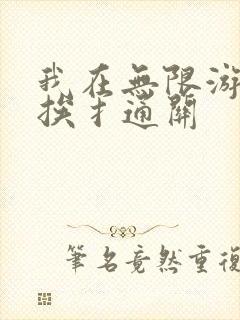 我在無限游
挨扌通關
筆名竟然重復